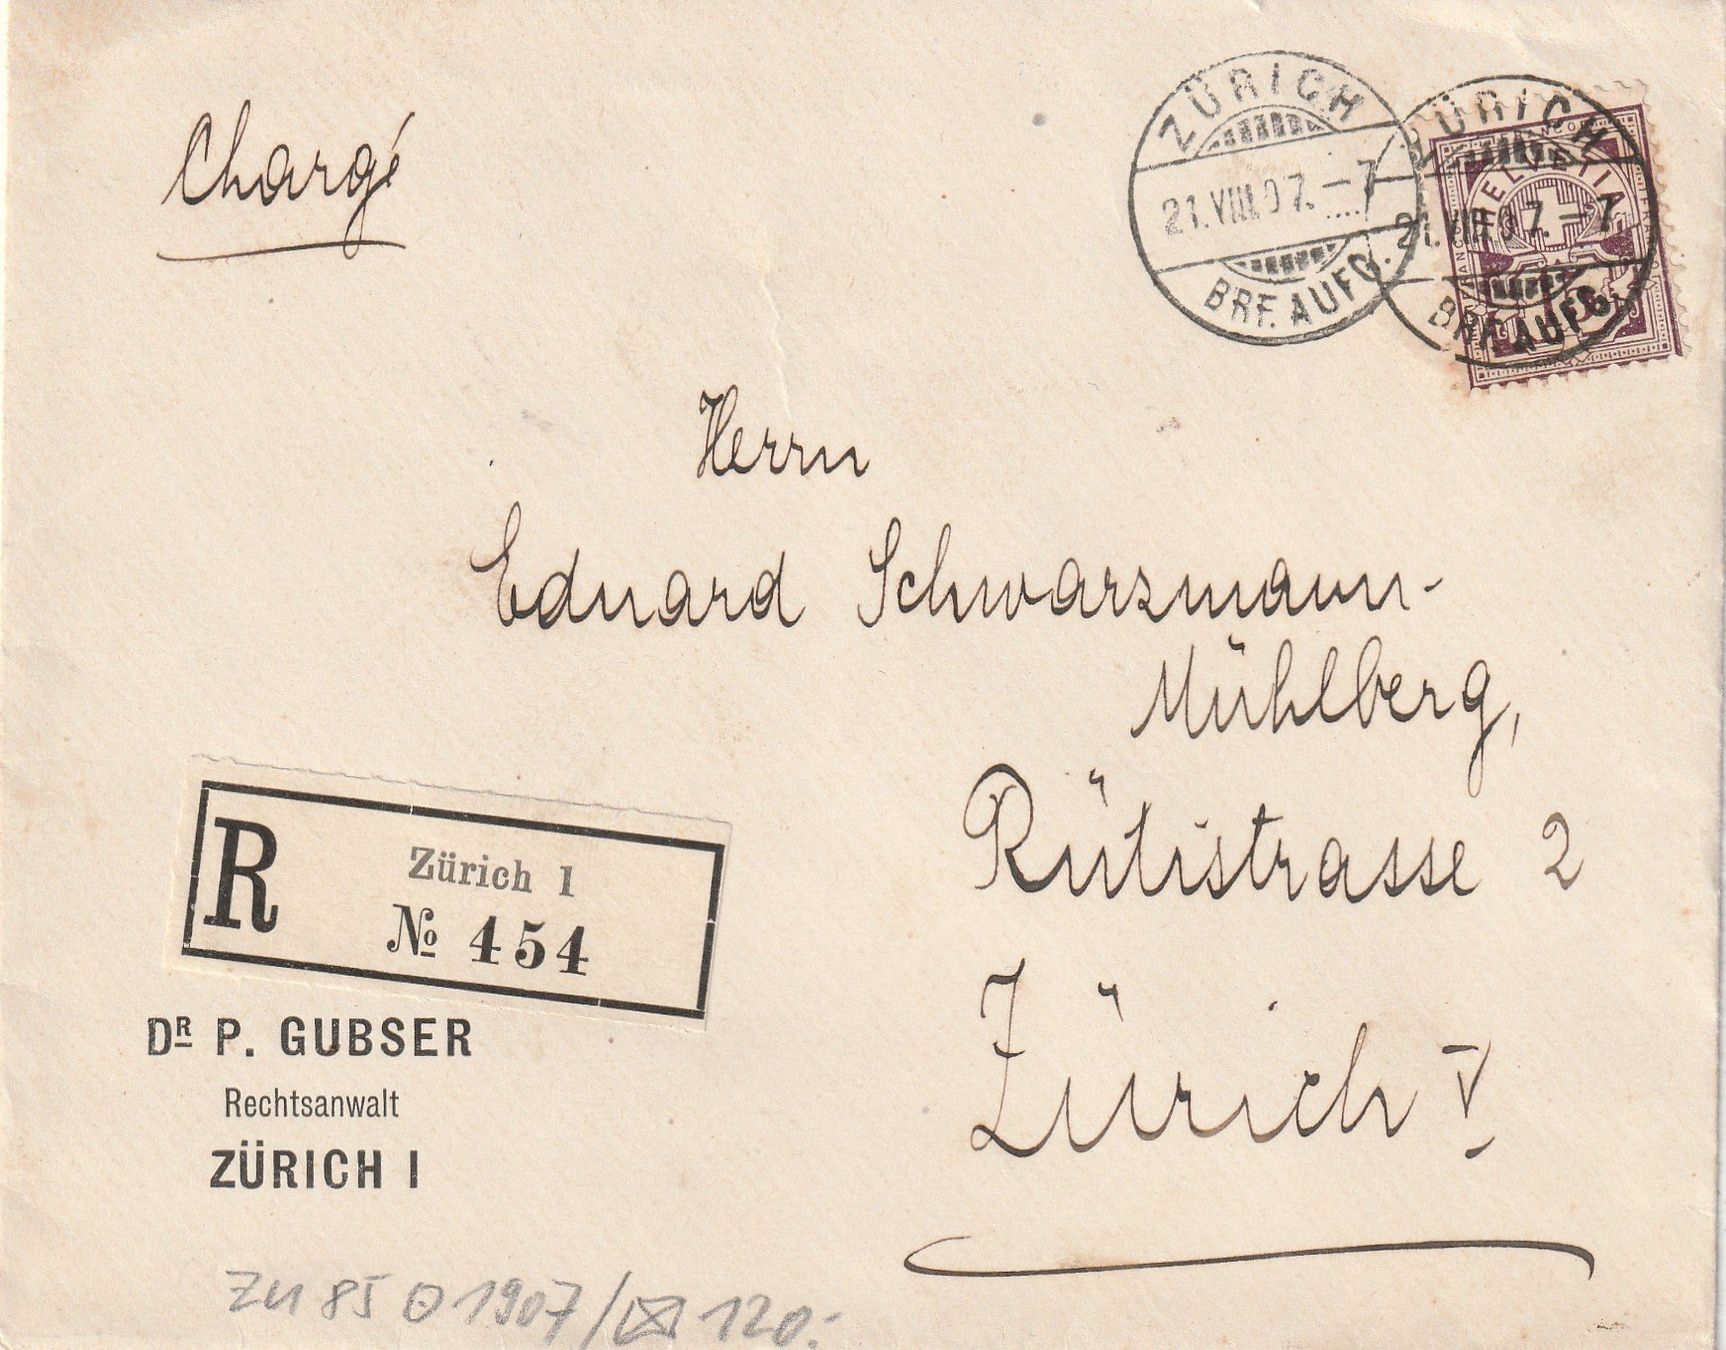 Chargé
ZÜRICH
21.VIII.07.–7
BRF. AUFG.
ZÜRICH
21.VIII.07.–7
BRF. AUFG.
HELVETIA
15
Herrn
Eduard Schwarzmann-
Mühlberg,
Rütistrasse 2
Zürich V
R
Zürich 1
№ 454
DR P. GUBSER
Rechtsanwalt
ZÜRICH I
ZU 85 1907/ 120.-